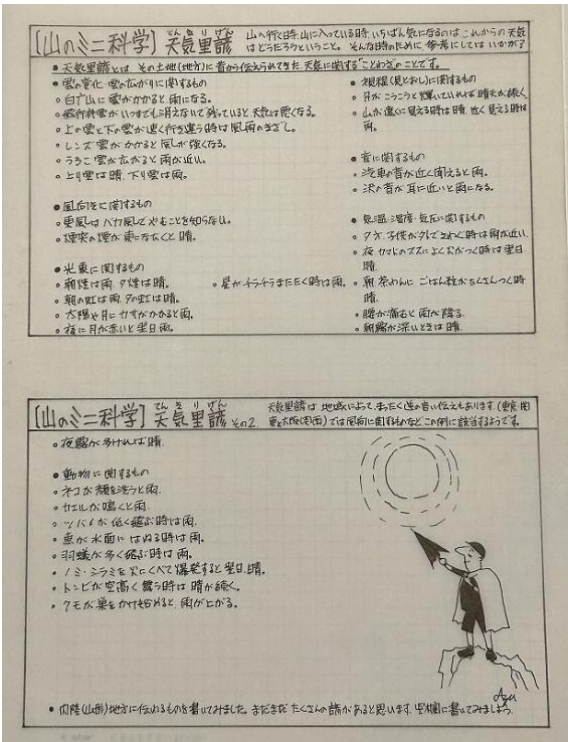 [山のミニ科学] 天気里諺 てんきりげん
山へ行く時、山に入っている時、いちばん気になるのは これからの天気
はどうだろうということ。そんな時のために 参考にしてはいかが?
• 天気里諺とは その土地(地方)に昔から伝えられてきた、天気に関する"ことわざ"のことです。
• 雲の変化 雲の広がりに関するもの
◦ 白す山に雲がかかると雨になる。
◦ 飛行機雲がいつまでも消えないで残っていると天気は悪くなる。
◦ 上の雲と下の雲が速く行き違う時は風雨のきざし。
◦ レンズ雲がかかると風が強くなる。
◦ うろこ雲が広がると雨が近い。
◦ 上り雲は晴、下り雲は雨。
• 風向きに関するもの
◦ 東風はバカ風でやむことを知らない。
◦ 煙突の煙が東になびくと晴。
• 光象に関するもの
◦ 朝焼は雨、夕焼は晴。
◦ 朝の虹は雨、夕の虹は晴。
◦ 太陽や月にカサがかかると雨。
◦ 夜に月が赤いと翌日雨。
◦ 星がチラチラまたたく時は雨。
• 視程(見とおし)に関するもの
◦ 月がこうこうと輝いていれば晴天が続く。
◦ 山が遠くに見える時は晴 近く見える時は
雨。
• 音に関するもの
◦ 汽車の音が近く聞えると雨。
◦ 沢の音が耳に近いと雨になる。
• 気温、湿度、気圧に関するもの
◦ 夕方、子供が外でさわぐ時は雨が近い。
◦ 夜 カマドのススによく火がつく時は翌日
晴。
◦ 朝 茶わんに ごはん粒がたくさんつく時
晴。
◦ 腰が痛むと雨が降る。
◦ 朝霧が深いときは晴
[山のミニ科学] 天気里諺 てんきりげん その2.
天気里諺は、地域によって、まったく逆の言い伝えもあります。(東京・関
東と大阪(関西)では風向に関するものなどこの例に該当するようです。
◦ 夜露が多ければ晴
• 動物に関するもの
◦ ネコが顔を洗うと雨.
◦ カエルが鳴くと雨.
◦ ツバメが低く飛ぶ時は雨.
◦ 魚が水面にはねる時は雨.
◦ 羽蟻が多く飛ぶ時は雨。
◦ ノミ・シラミを火にくべて爆発すると翌日晴。
◦ トンビが空高く舞う時は晴が続く。
◦ クモが巣をかけ始めると、雨が上がる。
• 内陸(山形)地方に伝わるものを書いてみました。まだまだたくさんの諺があると思います。空欄に書いてみましょう。